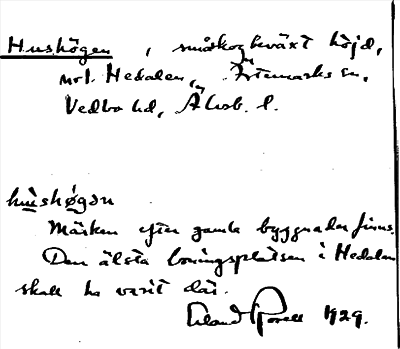 Hushögen, småskogbeväxt höjd,
mot Hedalen, Ärtemarks sn,
Vedbo hd, Älvsb. l.
hùshö́gən
Märken efter gamla byggnader finns.
Den älsta boningsplatsen i Hedalen
skall ha varit där.
Erland 1929.